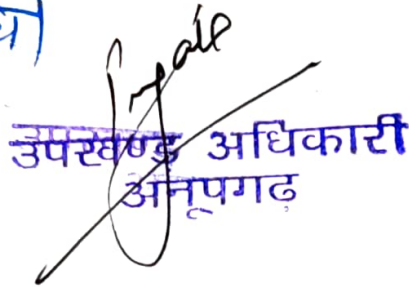 उपखण्ड अधिकारी
अनूपगढ़